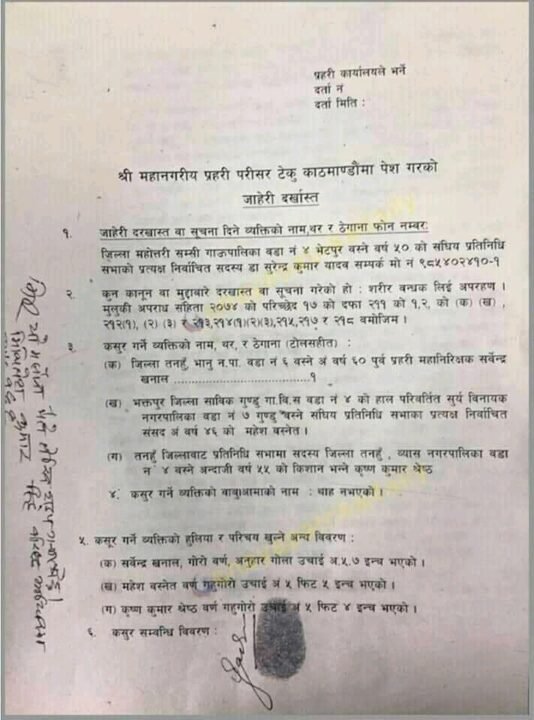 प्रहरी कार्यालयले भर्ने
दर्ता नं
दर्ता मिति :
श्री महानगरीय प्रहरी परीसर टेकु काठमाण्डौमा पेश गरको
जाहेरी दर्खास्त
१. जाहेरी दरखास्त वा सूचना दिने व्यक्तिको नाम,थर र ठेगाना फोन नम्बर:
जिल्ला महोत्तरी सम्सी गाऊपालिका वडा नं ४ भेटपुर वस्ने वर्ष ५० को संघिय प्रतिनिधि
सभाको प्रत्यक्ष निर्वाचित सदस्य डा सुरेन्द्र कुमार यादव सम्पर्क मो नं ९८५४०२४१०-१
२. कुन कानून वा मुद्दाबारे दरखास्त वा सूचना गरेको हो : शरीर वन्धक लिई अपरहण ।
मुलुकी अपराध संहिता २०७४ को परिच्छेद १७ को दफा २११ को १.२, को (क) (ख) ,
२१२(१), (२) (३) २१३,२१४(१)(२)(३),२१५,२१७ र २१८ वमोजिम ।
३. कसुर गर्ने व्यक्तीको नाम, थर, र ठेगाना (टोलसहीत) :
(क) जिल्ला तनहुँ, भानु न.पा. वडा नं ६ वस्ने अं वर्ष ६० पुर्व प्रहरी महानिरिक्षक सर्वेन्द्र
खनाल ..............................१
(ख) भक्तपुर जिल्ला साविक गुण्डु गा.बि.स वडा नं ४ को हाल परिवर्तित सुर्य विनायक
नगरपालिका वडा नं ७ गुण्डु वस्ने संघिय प्रतिनिधि सभाका प्रत्यक्ष निर्वाचित
संसद अं वर्ष ४६ को महेश वस्नेत ।
(ग) तनहुँ जिल्लावाट प्रतिनिधि सभामा सदस्य जिल्ला तनहुँ , व्यास नगरपालिका वडा
नं ४ वस्ने अन्दाजी वर्ष ५५ को किशान भन्ने कृष्ण कुमार श्रेष्ठ
४. कसुर गर्ने व्यक्तिको वावुआमाको नाम : थाह नभएको ।
५. कसूर गर्ने व्यक्तिको हुलिया र परिचय खुल्ने अन्य विवरण :
(क) सर्वेन्द्र खनाल, गोरो वर्ण, अनुहार गोला उचाई अं.५.७ इन्च भएको ।
(ख) महेश वस्नेत वर्ण गहुगोरो उचाई अं ५ फिट ५ इन्च भएको ।
(ग) कृष्ण कुमार श्रेष्ठ वर्ण गहुगोरो उचाई अं ५ फिट ४ इन्च भएको ।
६. कसुर सम्वन्धि विवरण :